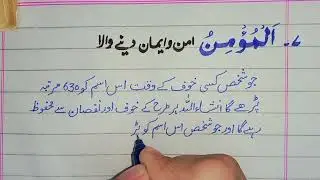 ۷۔ اَلْمُؤْمِنُ امن وایمان دینے والا
جو شخص کسی خوف کے وقت اس اسم کو 630 مرتبہ
پڑھے گا انشاءاللہ ہر طرح کے خوف اور نقصان سے محفوظ
رہے گا اور جو شخص اس اسم کو پڑ